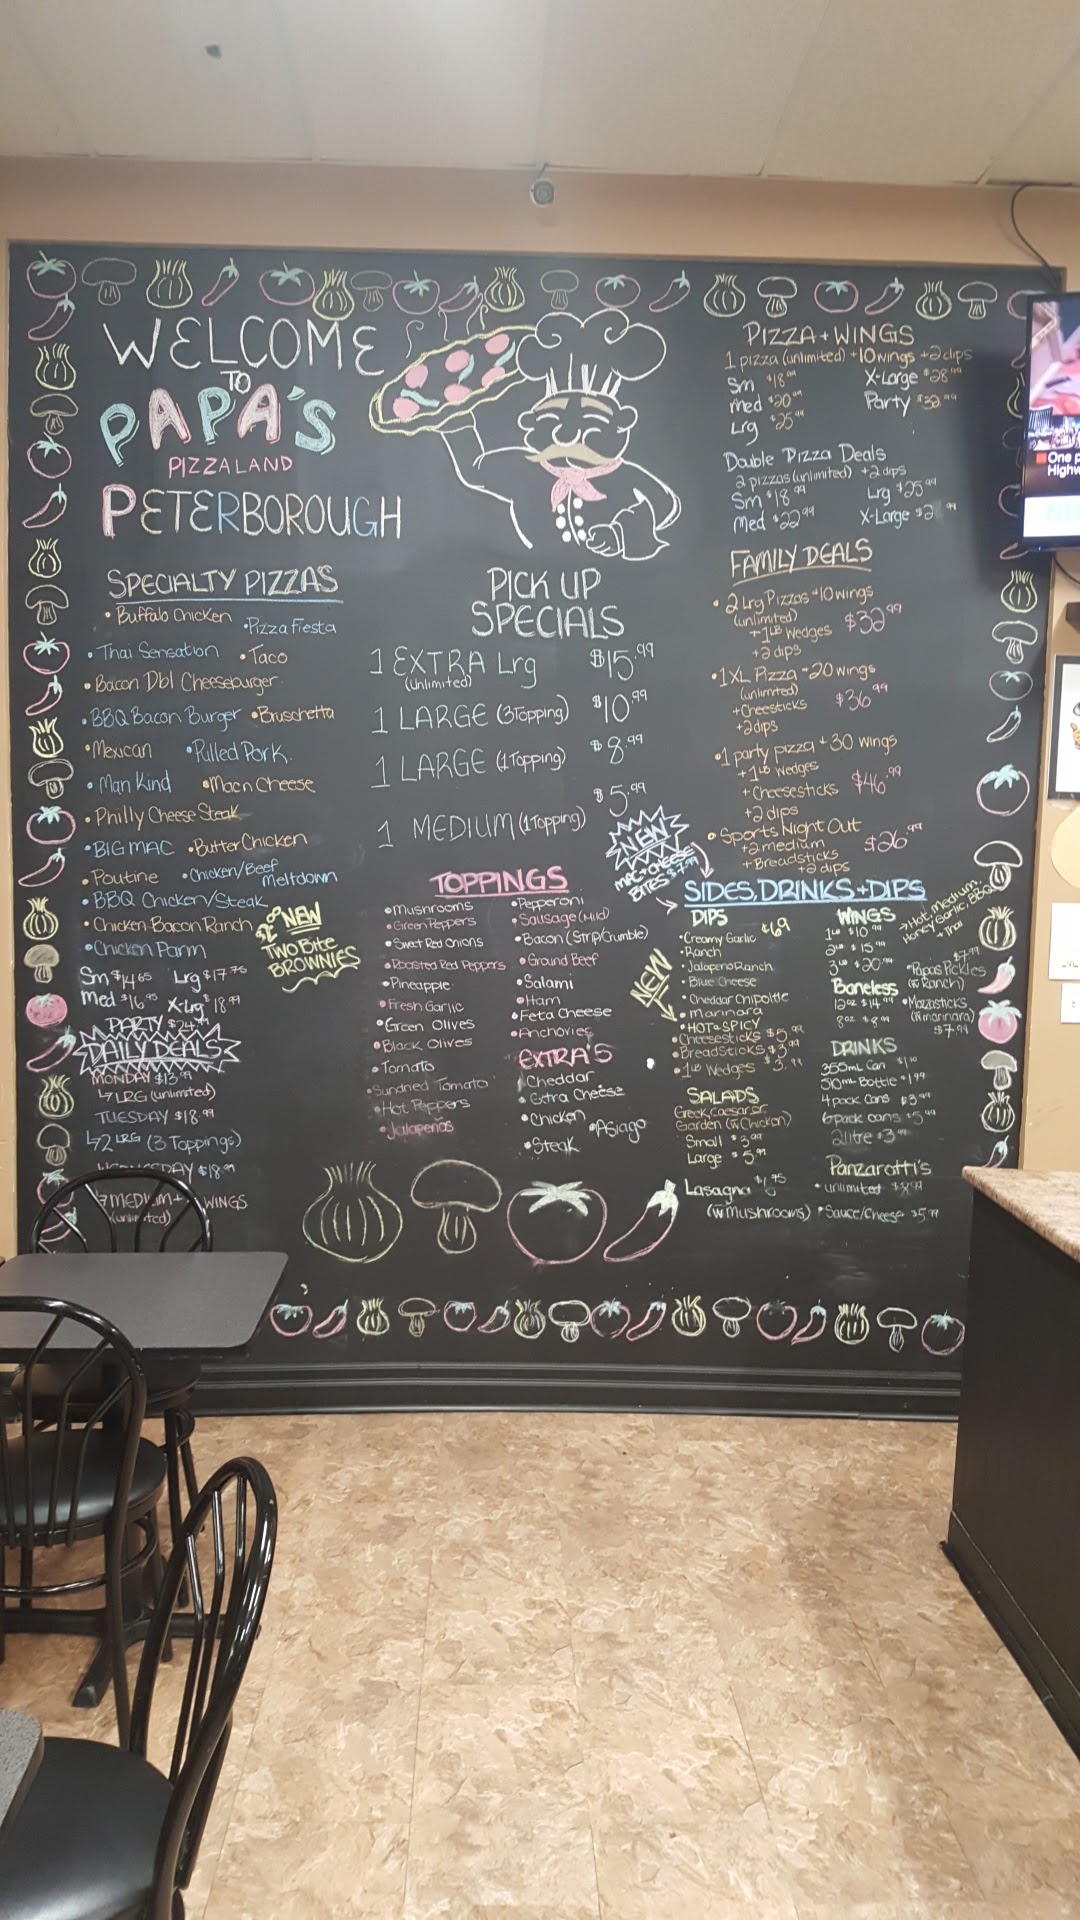 WELCOME
TO
PAPA'S
PIZZALAND
PETERBOROUGH
SPECIALTY PIZZAS
• Buffalo Chicken • Pizza Fiesta
• Thai Sensation • Taco
• Bacon Dbl Cheeseburger
• BBQ Bacon Burger • Bruschetta
• Mexican • Pulled Pork
• Man Kind • Mac n Cheese
• Philly Cheese Steak
• BIG MAC • Butter Chicken
• Poutine • Chicken/Beef Meltdown
• BBQ Chicken/Steak
• Chicken Bacon Ranch
• Chicken Parm
Sm $14.65 Lrg $17.75
Med $16.95 X-Lrg $18.99
PARTY $24.99
NEW
TWO BITE
BROWNIES
DAILY DEALS
MONDAY $13.99
↳ LRG (unlimited)
TUESDAY $18.99
↳ 2 LRG (3 Toppings)
WEDNESDAY $18.99
MEDIUM + WINGS
(unlimited)
PICK UP
SPECIALS
1 EXTRA Lrg $15.99
(unlimited)
1 LARGE (3 Topping) $10.99
1 LARGE (1 Topping) $8.99
1 MEDIUM (1 Topping) $5.99
NEW
MAC+CHEESE
BITES $7.99
TOPPINGS
• Mushrooms
• Green Peppers
• Sweet Red Onions
• Roasted Red Peppers
• Pineapple
• Fresh Garlic
• Green Olives
• Black Olives
• Tomato
• Sundried Tomato
• Hot Peppers
• Jalapenos
• Pepperoni
• Sausage (Mild)
• Bacon (Strip/Crumble)
• Ground Beef
• Salami
• Ham
• Feta Cheese
• Anchovies
EXTRA'S
• Cheddar
• Extra Cheese
• Chicken • Asiago
• Steak
PIZZA + WINGS
1 pizza (unlimited) + 10 wings + 2 dips
Sm $18.99 X-Large $28.99
Med $20.99 Party $32.99
Lrg $25.99
Double Pizza Deals
2 pizzas (unlimited) + 2 dips
Sm $18.99 Lrg $25.99
Med $22.99 X-Large $2
FAMILY DEALS
• 2 Lrg Pizzas + 10 wings
(unlimited) $32.99
+ 1LB Wedges
+ 2 dips
• 1 XL Pizza + 20 wings
(unlimited) $36.99
+ Cheesticks
+ 2 dips
• 1 party pizza + 30 wings
+ 1LB Wedges
+ Cheesesticks $46.99
+ 2 dips
• Sports Night Out
+ 2 medium $26.99
+ Breadsticks
+ 2 dips
SIDES, DRINKS + DIPS
DIPS
• Creamy Garlic
• Ranch
• Jalapeno Ranch
• Blue Cheese
• Cheddar Chipotle
• Marinara
• HOT + SPICY
NEW
• Cheesesticks $5.99
• Breadsticks $3.99
• 1LB Wedges $3.99
SALADS
Greek, Caesar or
Garden (w Chicken)
Small $3.99
Large $5.99
Lasagna
(w mushrooms)
WINGS
1LB $10.99
2LB $15.99
3LB $20.99
→ Hot, Medium,
Honey Garlic, BBQ
+ Thai
Boneless
12oz $14.99
8oz $8.99
• Papas Pickles $7.99
(w Ranch)
• Mozzasticks
(w marinara)
$7.99
DRINKS
355mL Can
510mL Bottle $1.99
4 pack cans $3.99
6 pack cans $5.99
2 litre $3.99
Panzarotti's
• unlimited $8.99
• Sauce/Cheese $5.99
One p
Highw